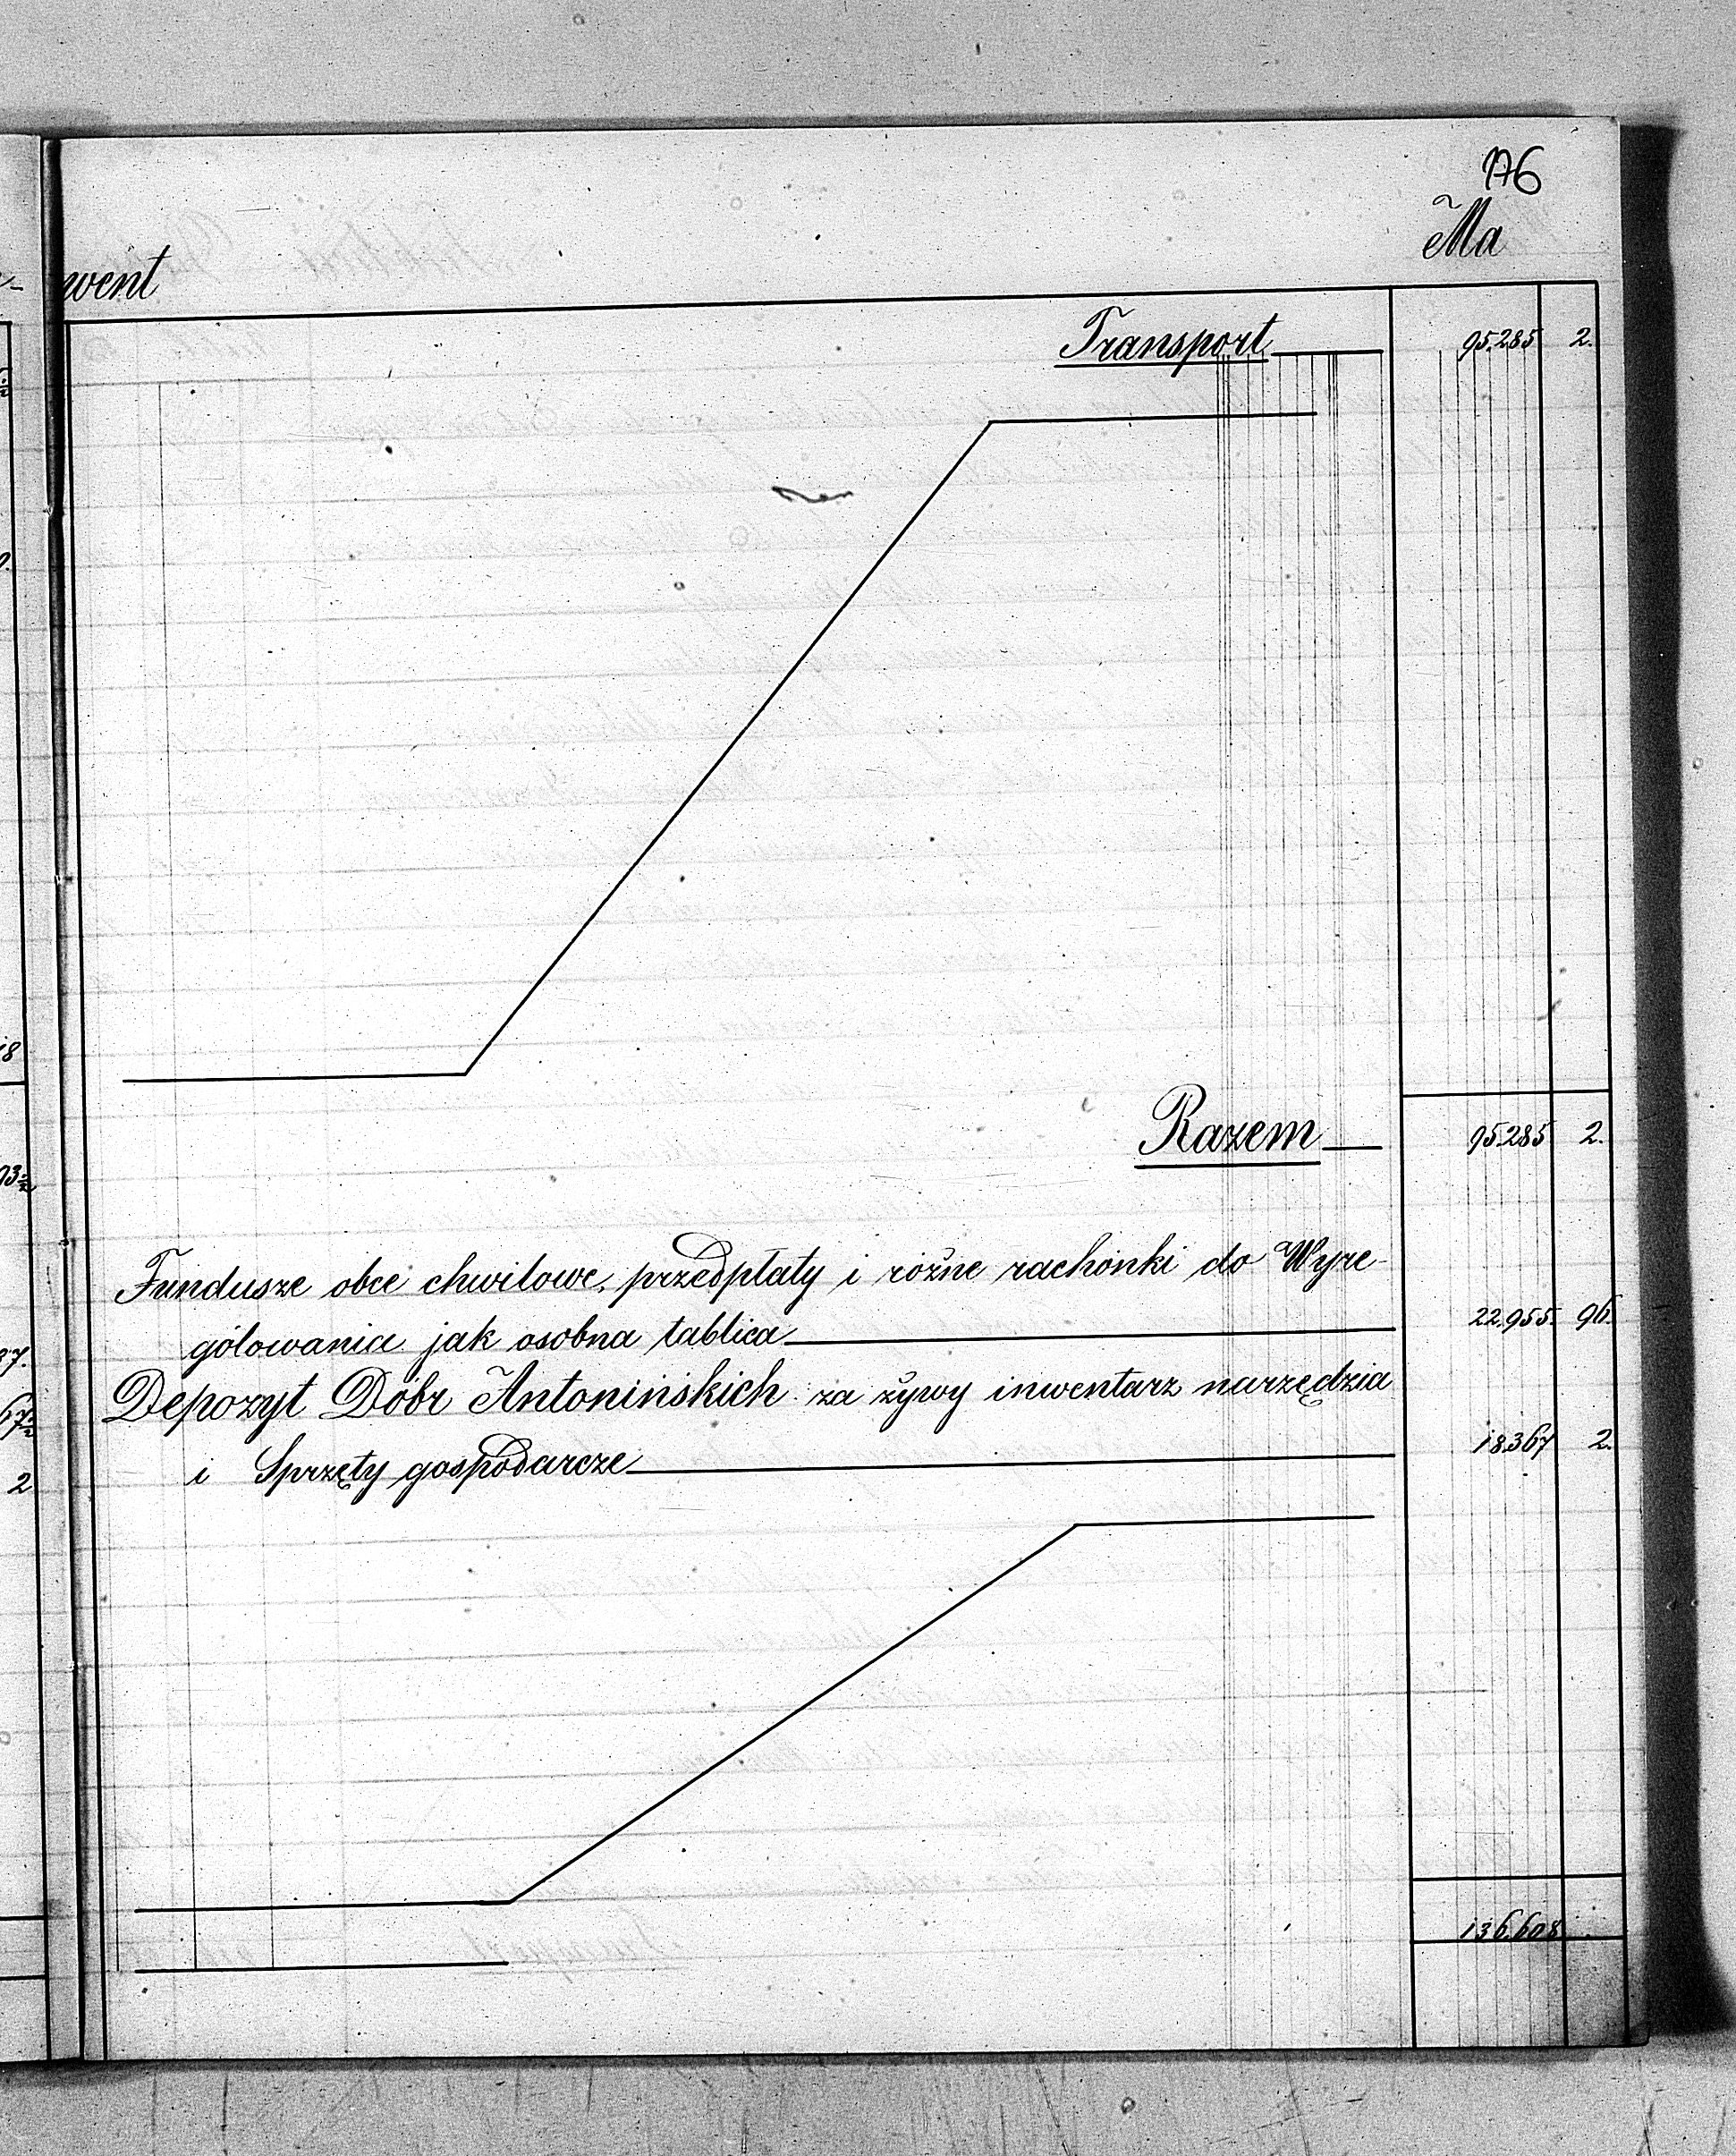 176
Ma
went
Transport 95.285 2.
Razem 95.285 2.
Fundusze obce chwilowe, przedpłaty i różne rachónki do Wyre-
gólowania jak osobna tablica 22.955. 96.
Depozyt Dóbr Antonińskich za żywy inwentarz narzędzia
i Sprzęty gospodarcze 18.367 2.
136.608